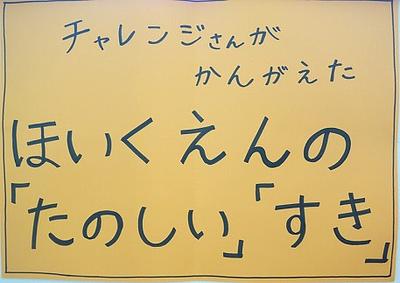 チャレンジさんが
かんがえた
ほいくえんの
「たのしい」「すき」